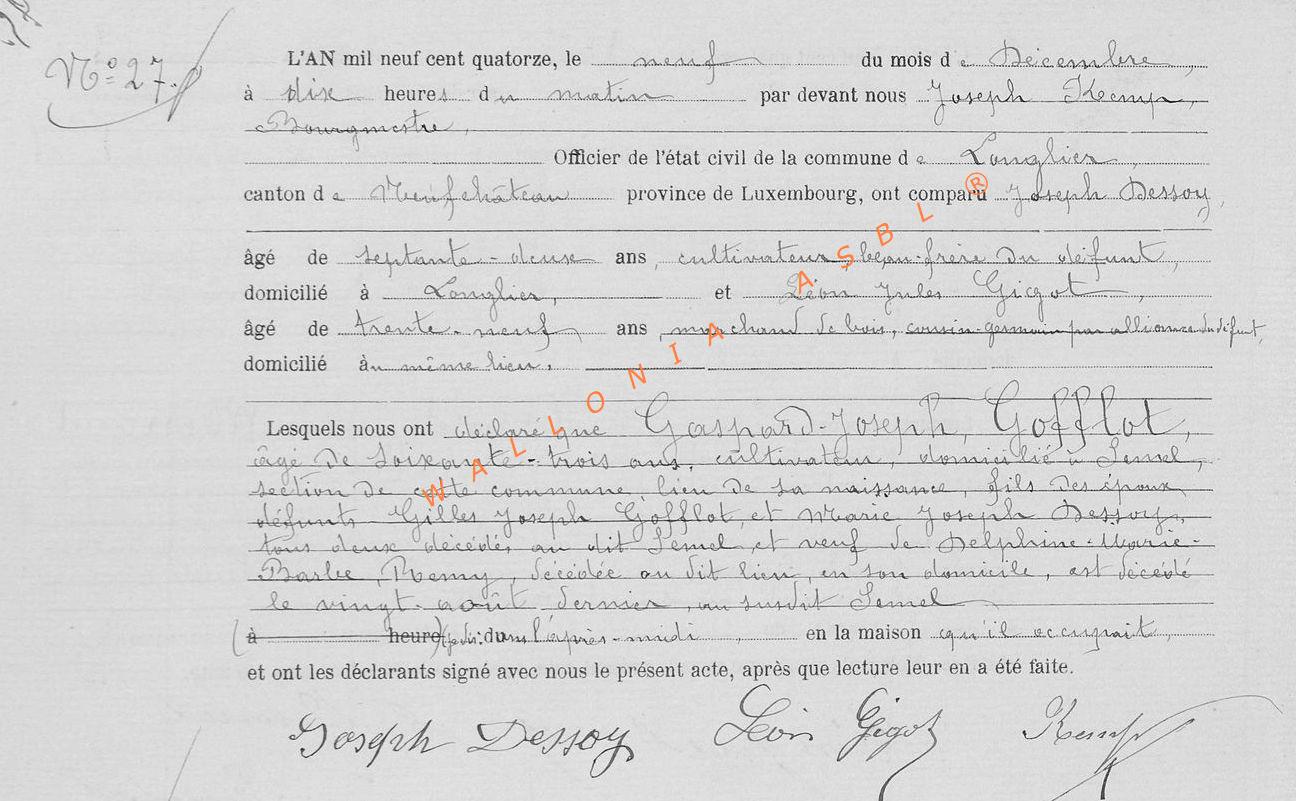 N° 27.
L'AN mil neuf cent quatorze, le neuf du mois de Décembre,
à dix heures du matin par devant nous Joseph Kemp,
Bourgmestre,
Officier de l'état civil de la commune de Longlier,
canton de Neufchâteau province de Luxembourg, ont comparu Joseph Dessoy,
âgé de septante-deux ans, cultivateur, beau-frère du défunt,
domicilié à Longlier, et Léon Jules Gigot,
âgé de trente-neuf ans, marchand de bois, cousin-germain par alliance du défunt,
domicilié au même lieu.
Lesquels nous ont déclaré que Gaspard-Joseph, Gofflot,
âgé de soixante-trois ans, cultivateur, domicilié à Semel,
section de cette commune, lieu de sa naissance, fils des époux
défunts Gilles Joseph Gofflot, et Marie Joseph Dessoy,
tous deux décédés au dit Semel, et veuf de Delphine-Marie-
Barbe, Remy, décédée au dit lieu, en son domicile, est décédé
le vingt-août dernier, au susdit Semel
(à heure) dans l'après-midi en la maison qu'il occupait,
et ont les déclarants signé avec nous le présent acte, après que lecture leur en a été faite.
Joseph Dessoy Léon Gigot Kemp
WALLONIA ASBL ®